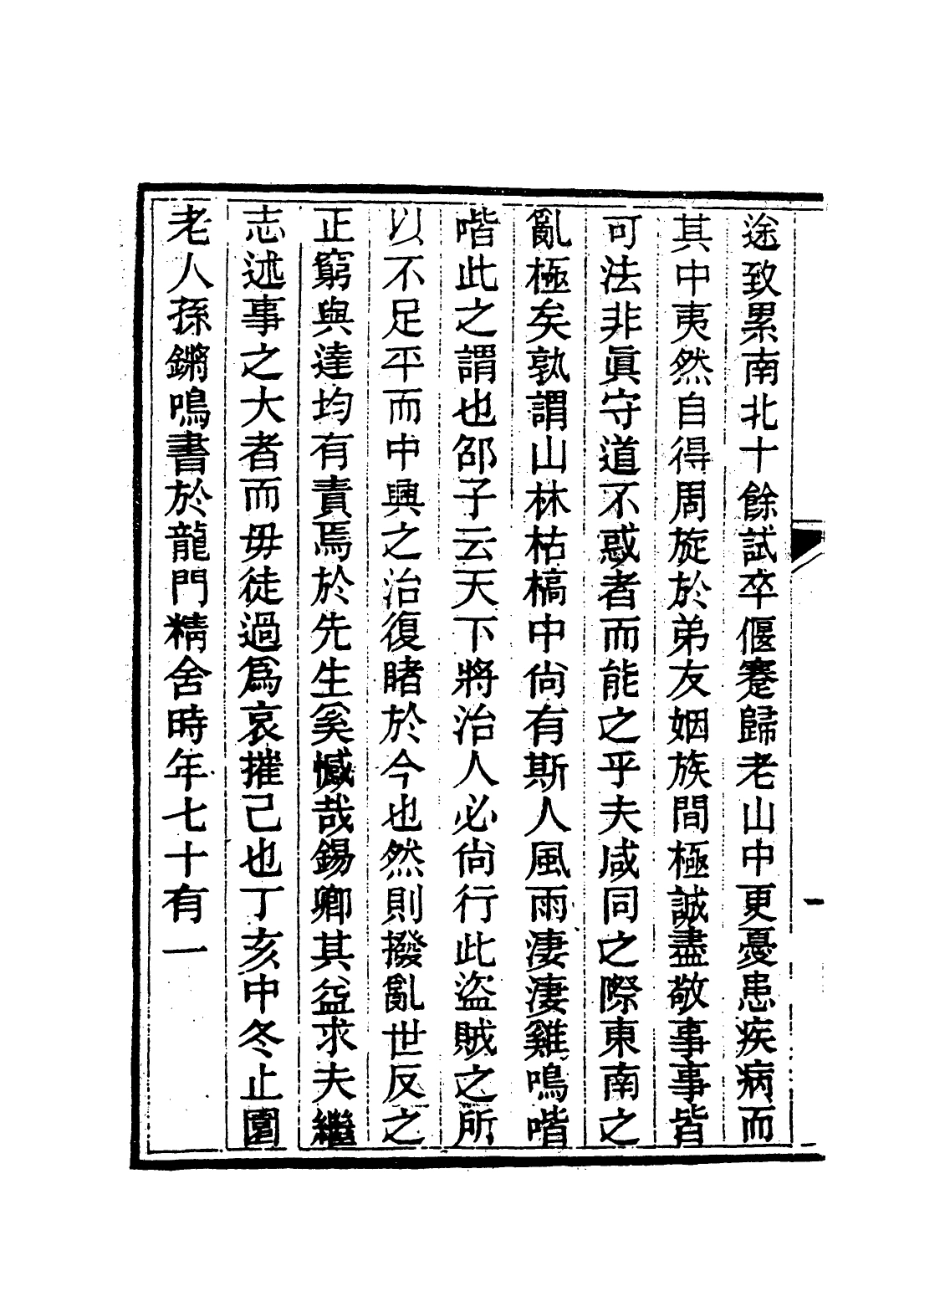 途致累南北十餘試卒偃蹇歸老山中更憂患疾病而
其中夷然自得周旋於弟友姻族間極誠盡敬事事皆
可法非眞守道不惑者而能之乎夫咸同之際東南之
亂極矣孰謂山林枯槁中尙有斯人風雨淒淒雞鳴喈
喈此之謂也邵子云天下將治人必尙行此盜賊之所
以不足平而中興之治復睹於今也然則撥亂世反之
正窮與達均有責焉於先生奚憾哉錫卿其益求夫繼
志述事之大者而毋徒過爲哀摧己也丁亥中冬止園
老人孫鏘鳴書於龍門精舍時年七十有一